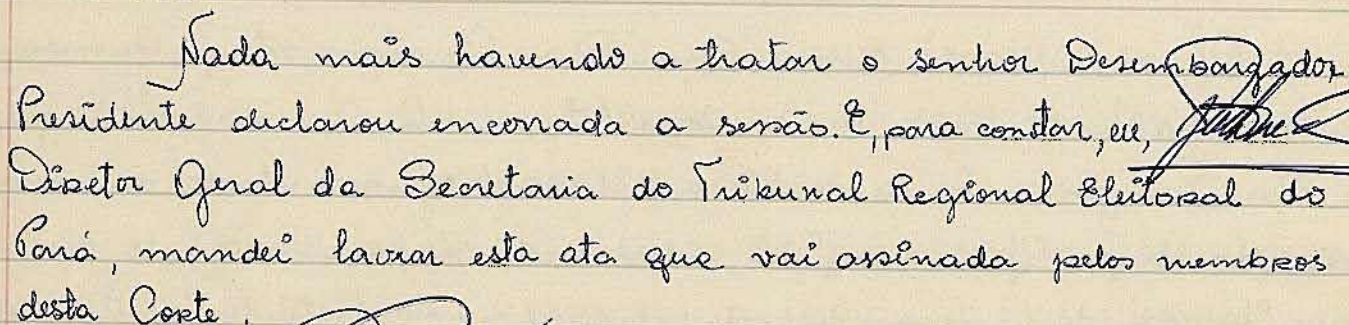 Nada mais havendo a tratar o senhor Desembargador
Presidente declarou encerrada a sessão. E, para constar, eu,
Diretor Geral da Secretaria do Tribunal Regional Eleitoral do
Pará, mandei lavrar esta ata que vai assinada pelos membros
desta Corte.